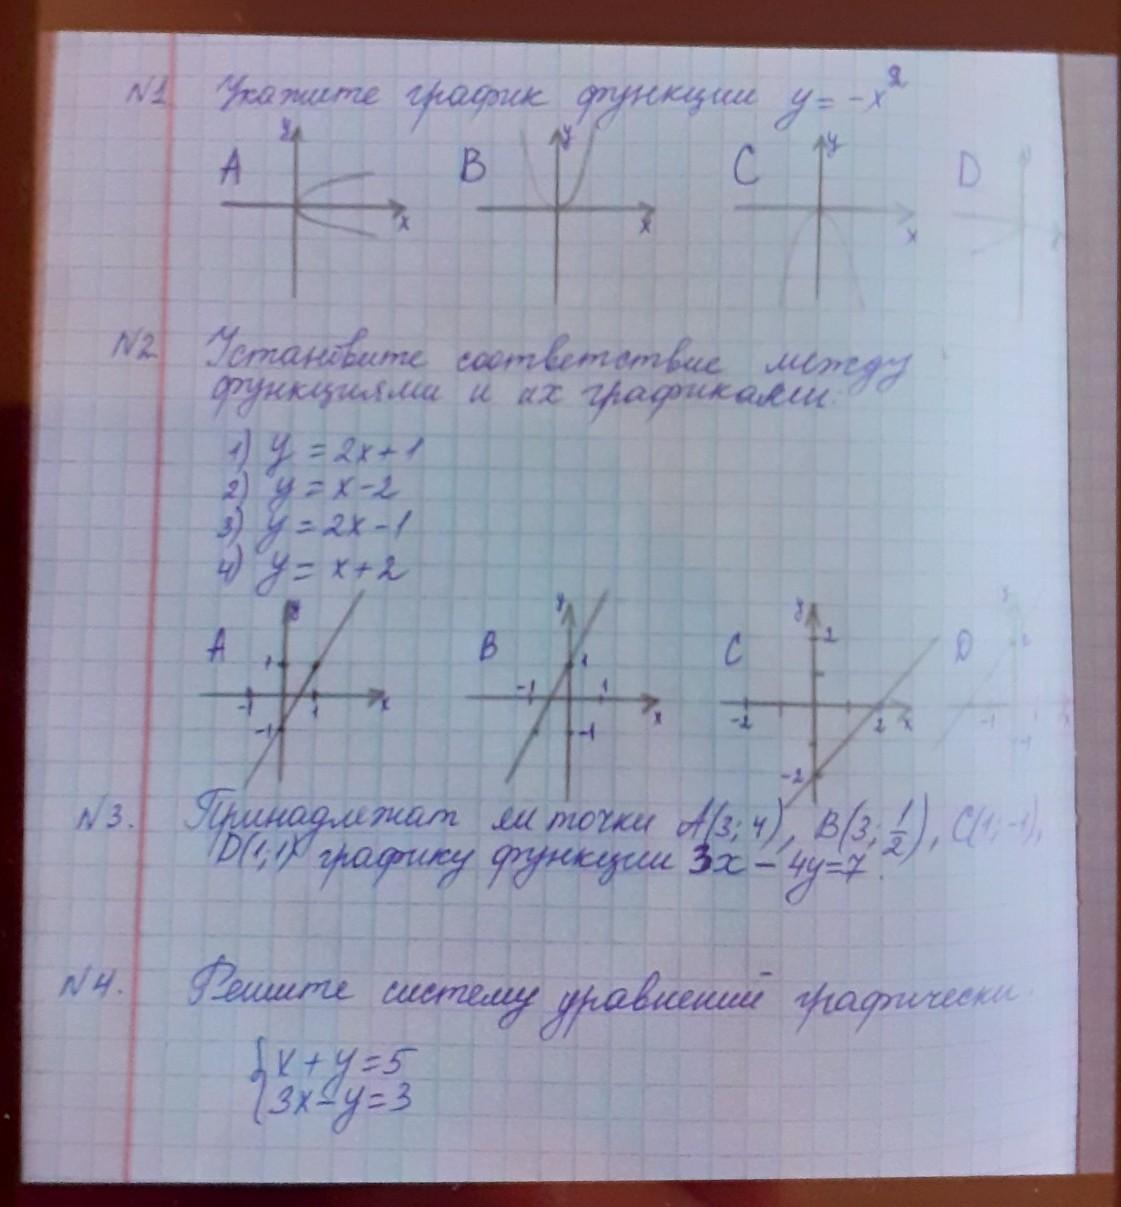 N1 Укажите график функции y = -x²
A y x B y x C y x D
N2 Установите соответствие между
функциями и их графиками.
1) y = 2x+1
2) y = x-2
3) y = 2x-1
4) y = x+2
A y 1 -1 1 -1 x B y 1 -1 1 -1 x C y 2 -2 2 -2 x D y 2 -1
N3. Принадлежат ли точки A(3; 4), B(3; 1/2), C(1; -1),
D(1; 1) графику функции 3x - 4y=7.
N4. Решите систему уравнений графически.
{x + y = 5
{3x - y = 3